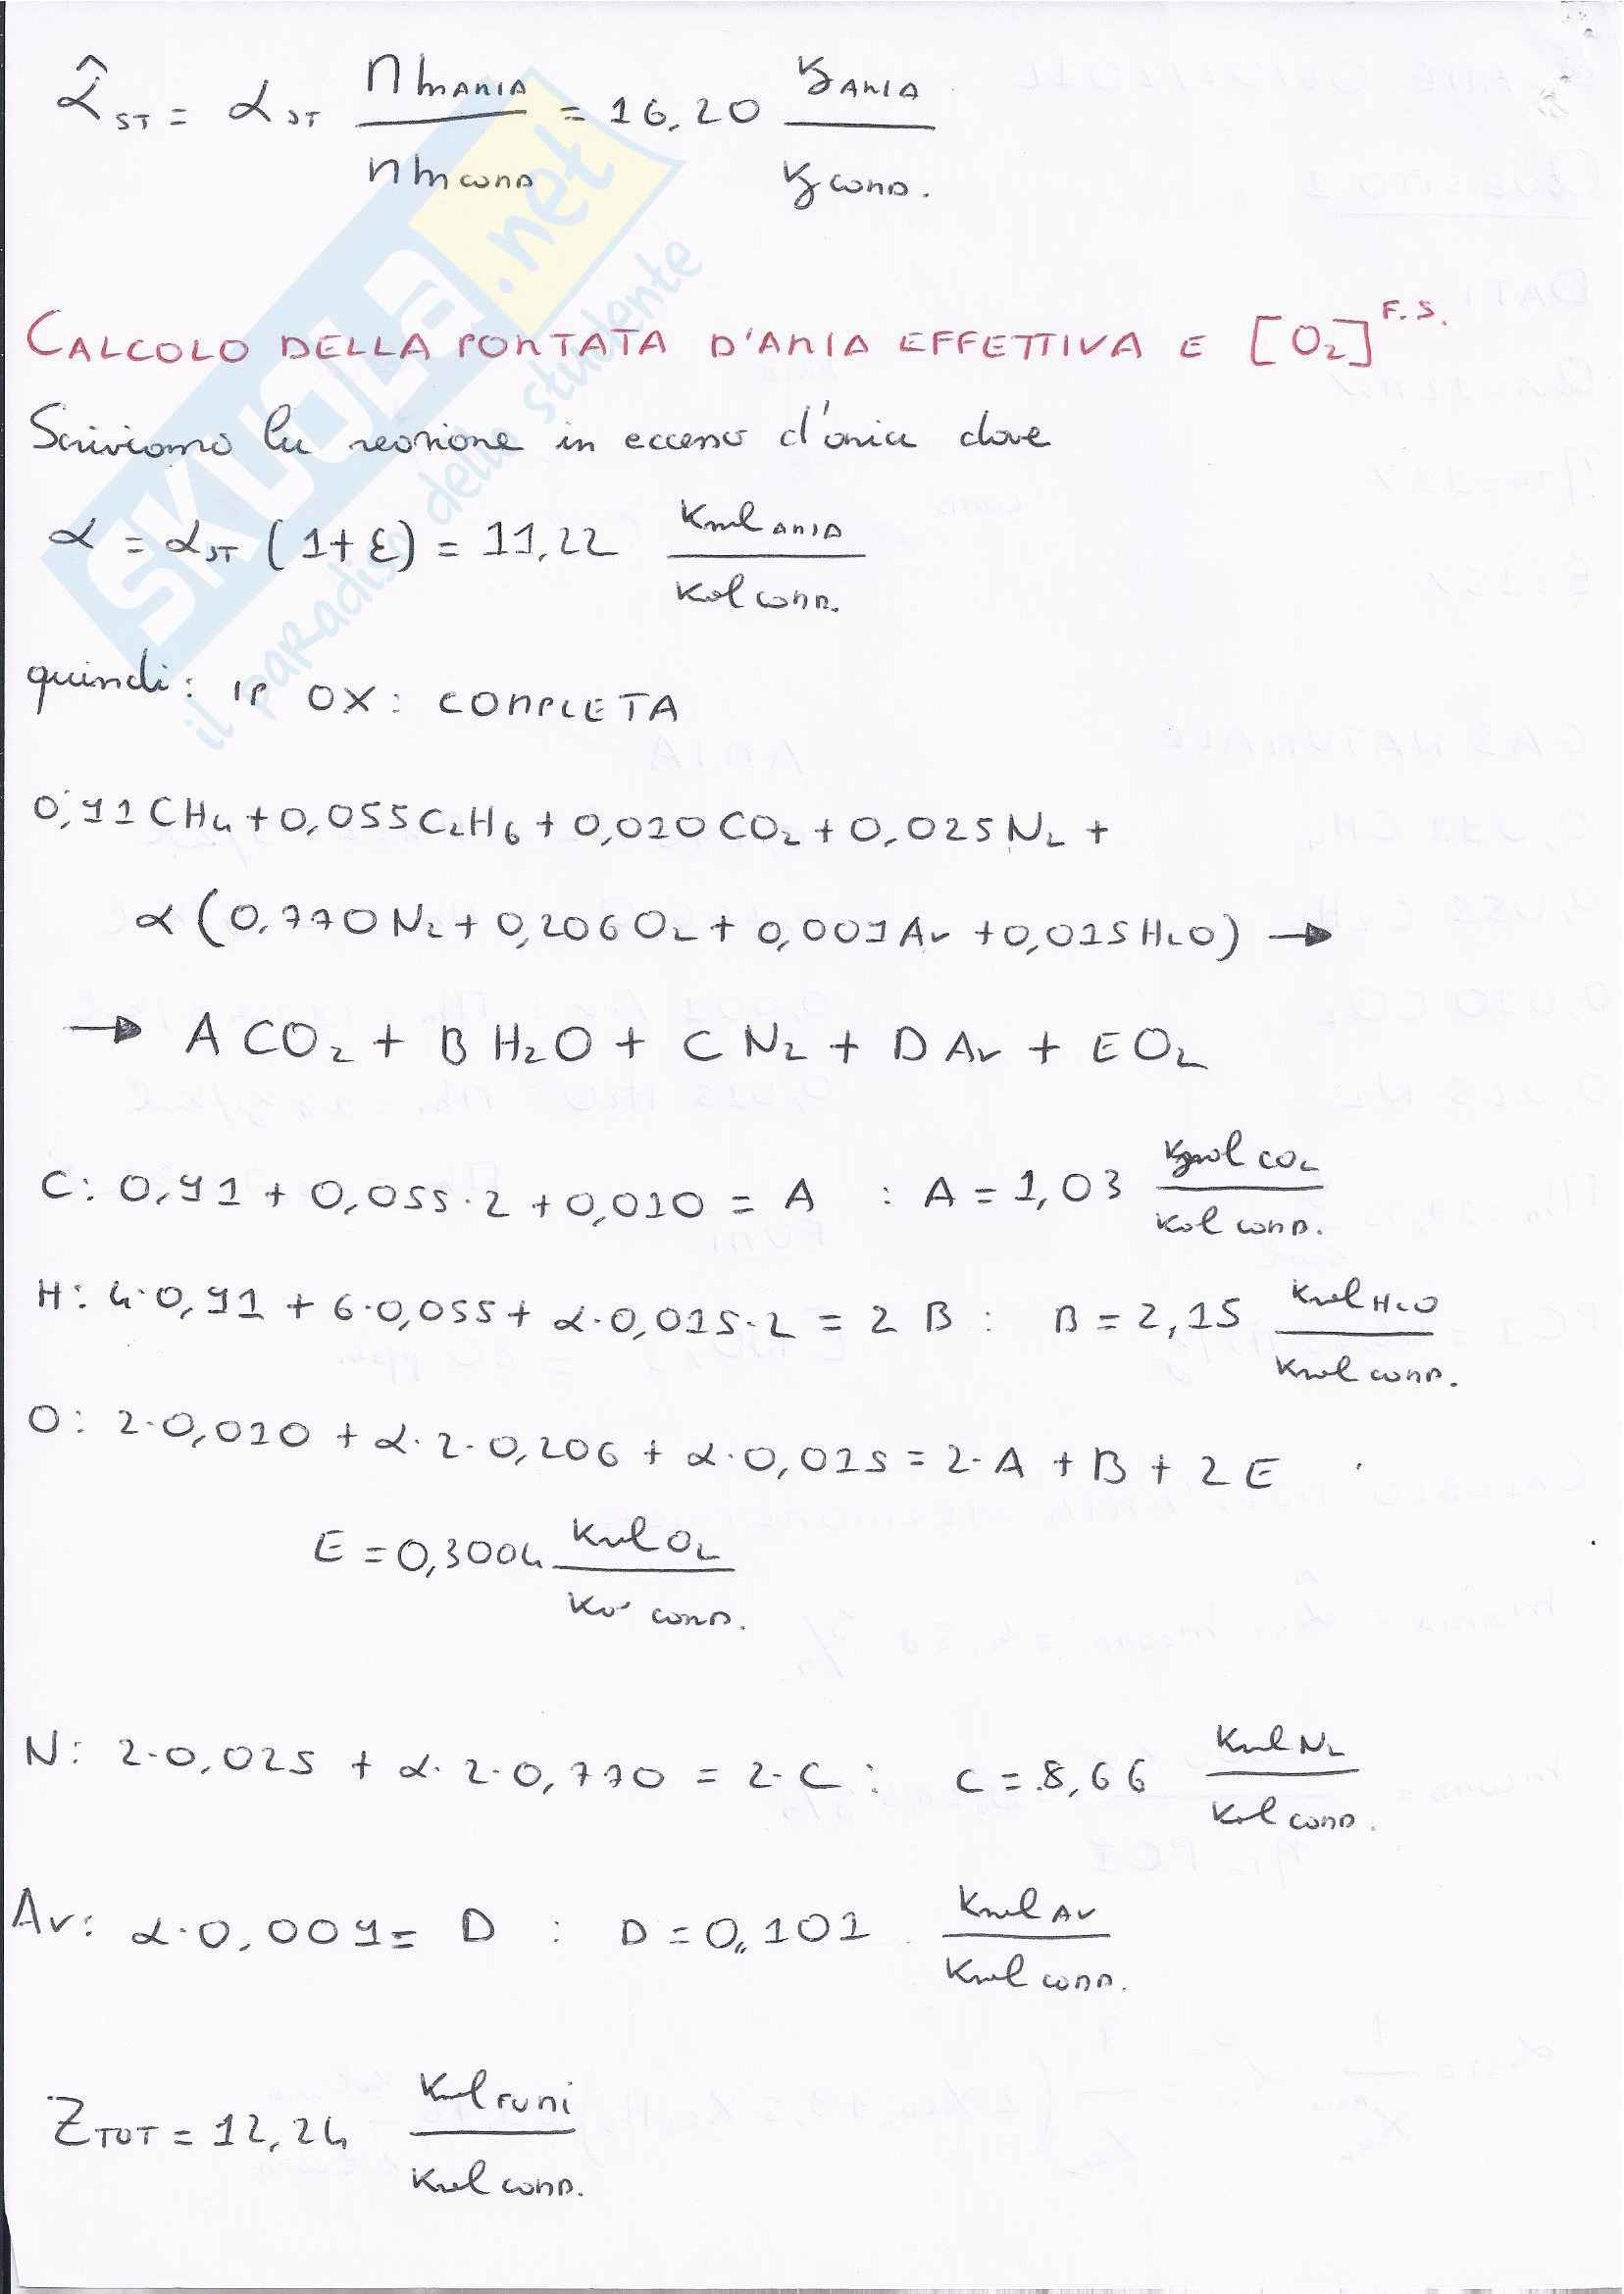 α̂ST = αST MmARIA / MmCOMB = 16,20 KgARIA / KgCOMB.
CALCOLO DELLA PORTATA D'ARIA EFFETTIVA E [O₂]F.S.
Scriviamo la reazione in eccesso d'aria dove
α = αST (1+ε) = 11,22 KmolARIA / Kmol COMB.
quindi: IP OX: COMPLETA
0,91CH₄ + 0,055C₂H₆ + 0,010CO₂ + 0,025N₂ +
α (0,770N₂ + 0,206O₂ + 0,009Ar + 0,015H₂O) →
→ A CO₂ + B H₂O + C N₂ + D Ar + E O₂
C: 0,91 + 0,055·2 + 0,010 = A : A = 1,03 Kmol CO₂ / Kmol COMB.
H: 4·0,91 + 6·0,055 + α·0,015·2 = 2 B : B = 2,15 Kmol H₂O / Kmol COMB.
O: 2·0,010 + α·2·0,206 + α·0,015 = 2·A + B + 2E
E = 0,3004 Kmol O₂ / Kmol COMB.
N: 2·0,025 + α·2·0,770 = 2·C : C = 8,66 Kmol N₂ / Kmol COMB.
Ar: α·0,009 = D : D = 0,101 Kmol Ar / Kmol COMB.
ZTOT = 12,24 Kmol FUMI / Kmol COMB.
SKUOLA.net
il paradiso dello studente